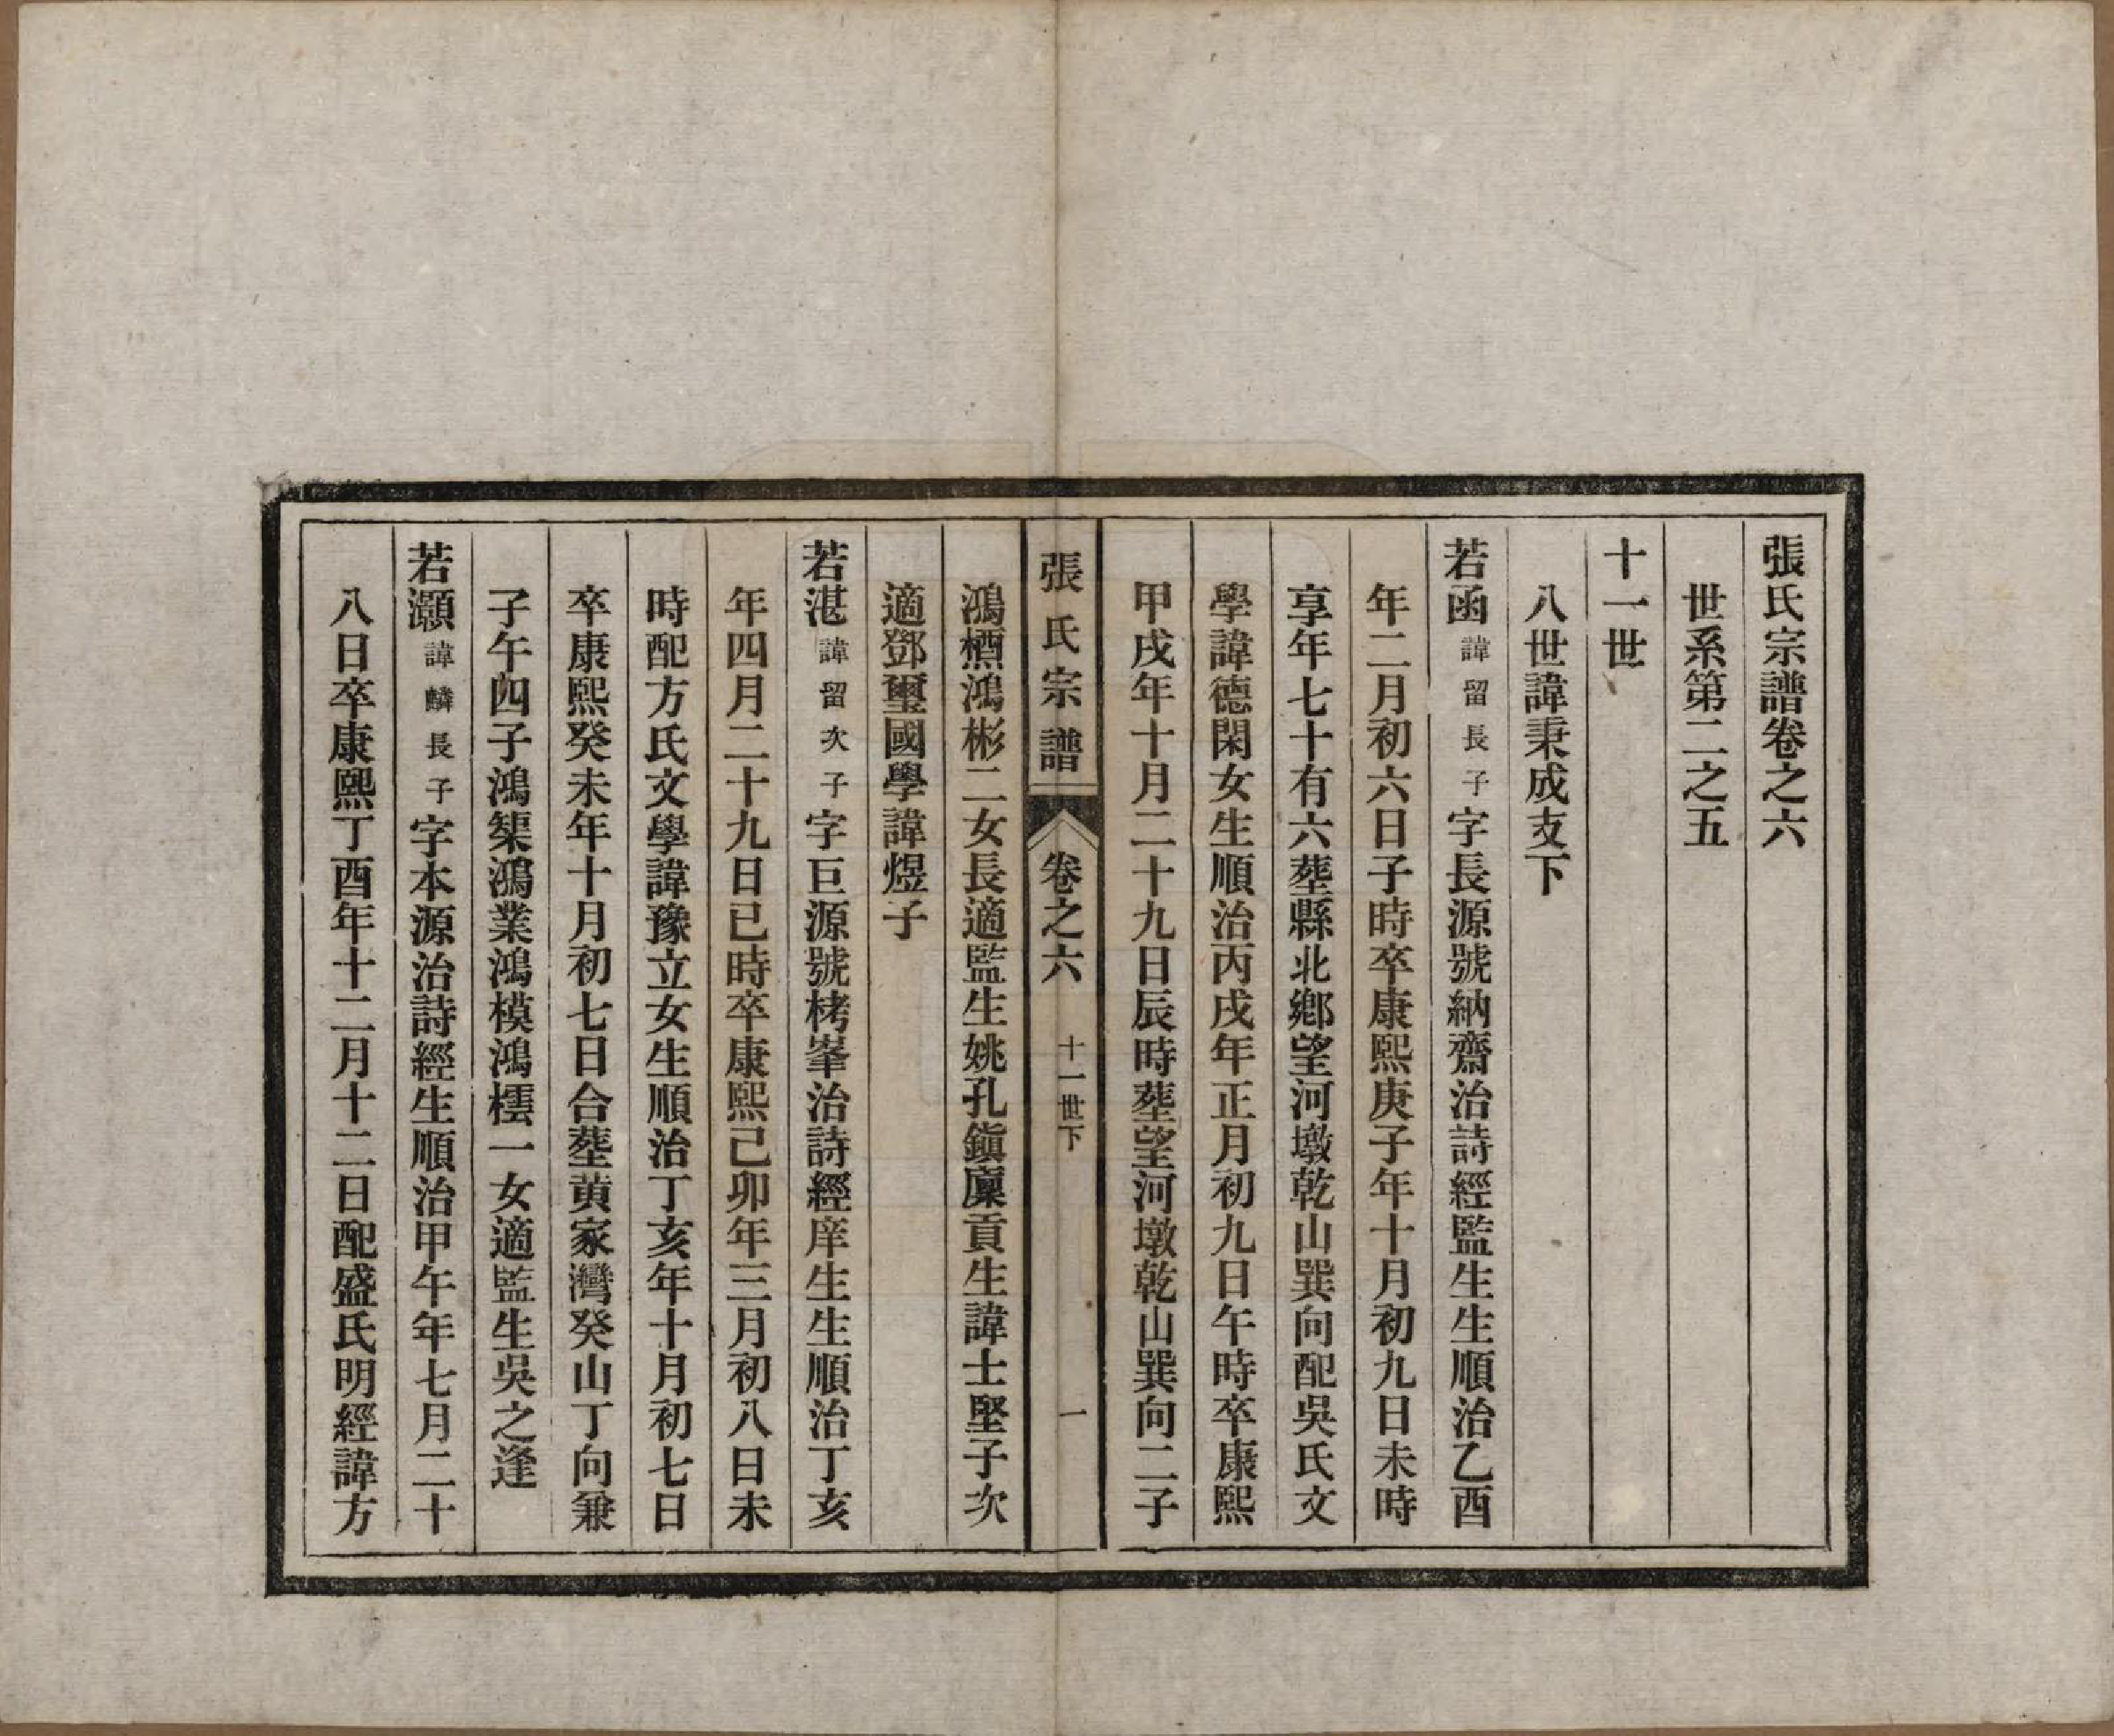 張氏宗譜卷之六
世系第二之五
十一世
八世諱秉成支下
若函諱留長子字長源號納齋治詩經監生生順治乙酉
年二月初六日子時卒康熙庚子年十月初九日未時
享年七十有六塟縣北鄉望河墩乾山巽向配吳氏文
學諱德閑女生順治丙戌年正月初九日午時卒康熙
甲戌年十月二十九日辰時塟望河墩乾山巽向二子
張氏宗譜 卷之六 十一世下 一
鴻槱鴻彬二女長適監生姚孔鎭廩貢生諱士堅子次
適鄧璽國學諱煜子
若湛諱留次子字巨源號栲峯治詩經庠生生順治丁亥
年四月二十九日巳時卒康熙己卯年三月初八日未
時配方氏文學諱豫立女生順治丁亥年十月初七日
卒康熙癸未年十月初七日合塟黃家灣癸山丁向兼
子午四子鴻榘鴻業鴻模鴻樰一女適監生吳之逢
若灝諱麟長子字本源治詩經生順治甲午年七月二十
八日卒康熙丁酉年十二月十二日配盛氏明經諱方